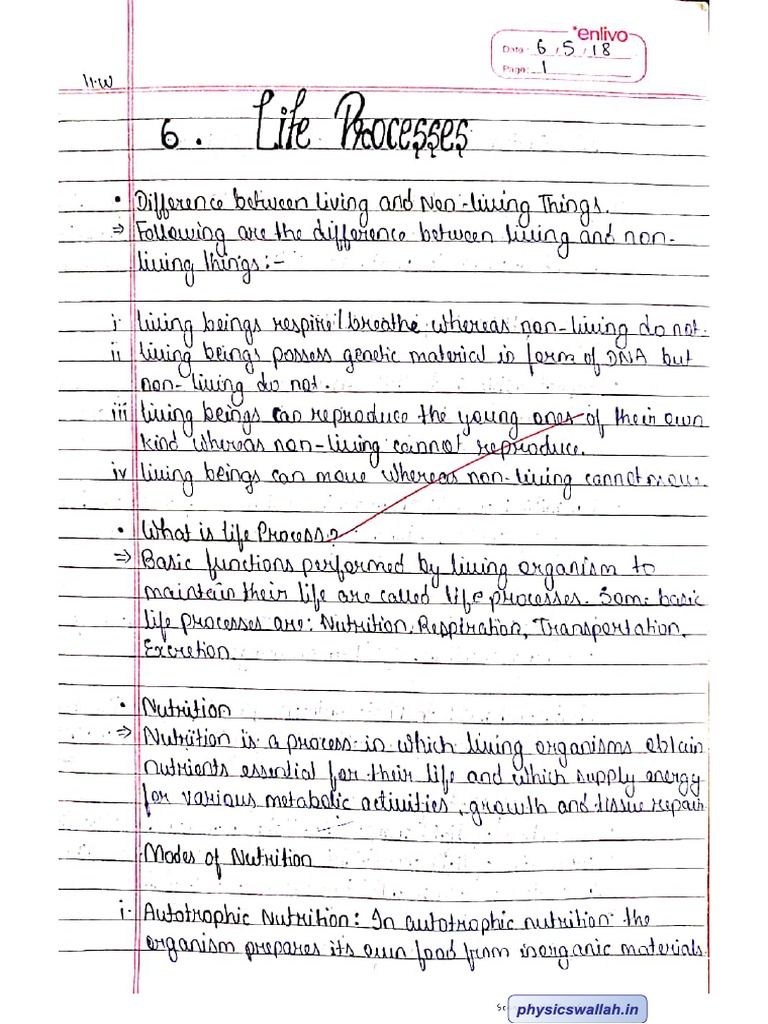 enlivo
Date: 6, 5, 18
Page: 1
H.W
6. Life Processes
• Difference between Living and Non-living Things.
⇒ Following are the difference between living and non-
living things:-
i. living beings respire/breathe whereas non-living do not.
ii living beings possess genetic material in form of DNA but
non-living do not.
iii living beings can reproduce the young ones of their own
kind whereas non-living cannot reproduce.
iv living beings can move whereas non-living cannot move.
• What is life Process?
⇒ Basic functions performed by living organism to
maintain their life are called life processes. Some basic
life processes are: Nutrition, Respiration, Transportation,
Excretion.
• Nutrition
⇒ Nutrition is a process in which living organisms obtain
nutrients essential for their life and which supply energy
for various metabolic activities, growth and tissue repair
Modes of Nutrition
i. Autotrophic Nutrition: In autotrophic nutrition the
organism prepares its own food from inorganic materials.
physicswallah.in